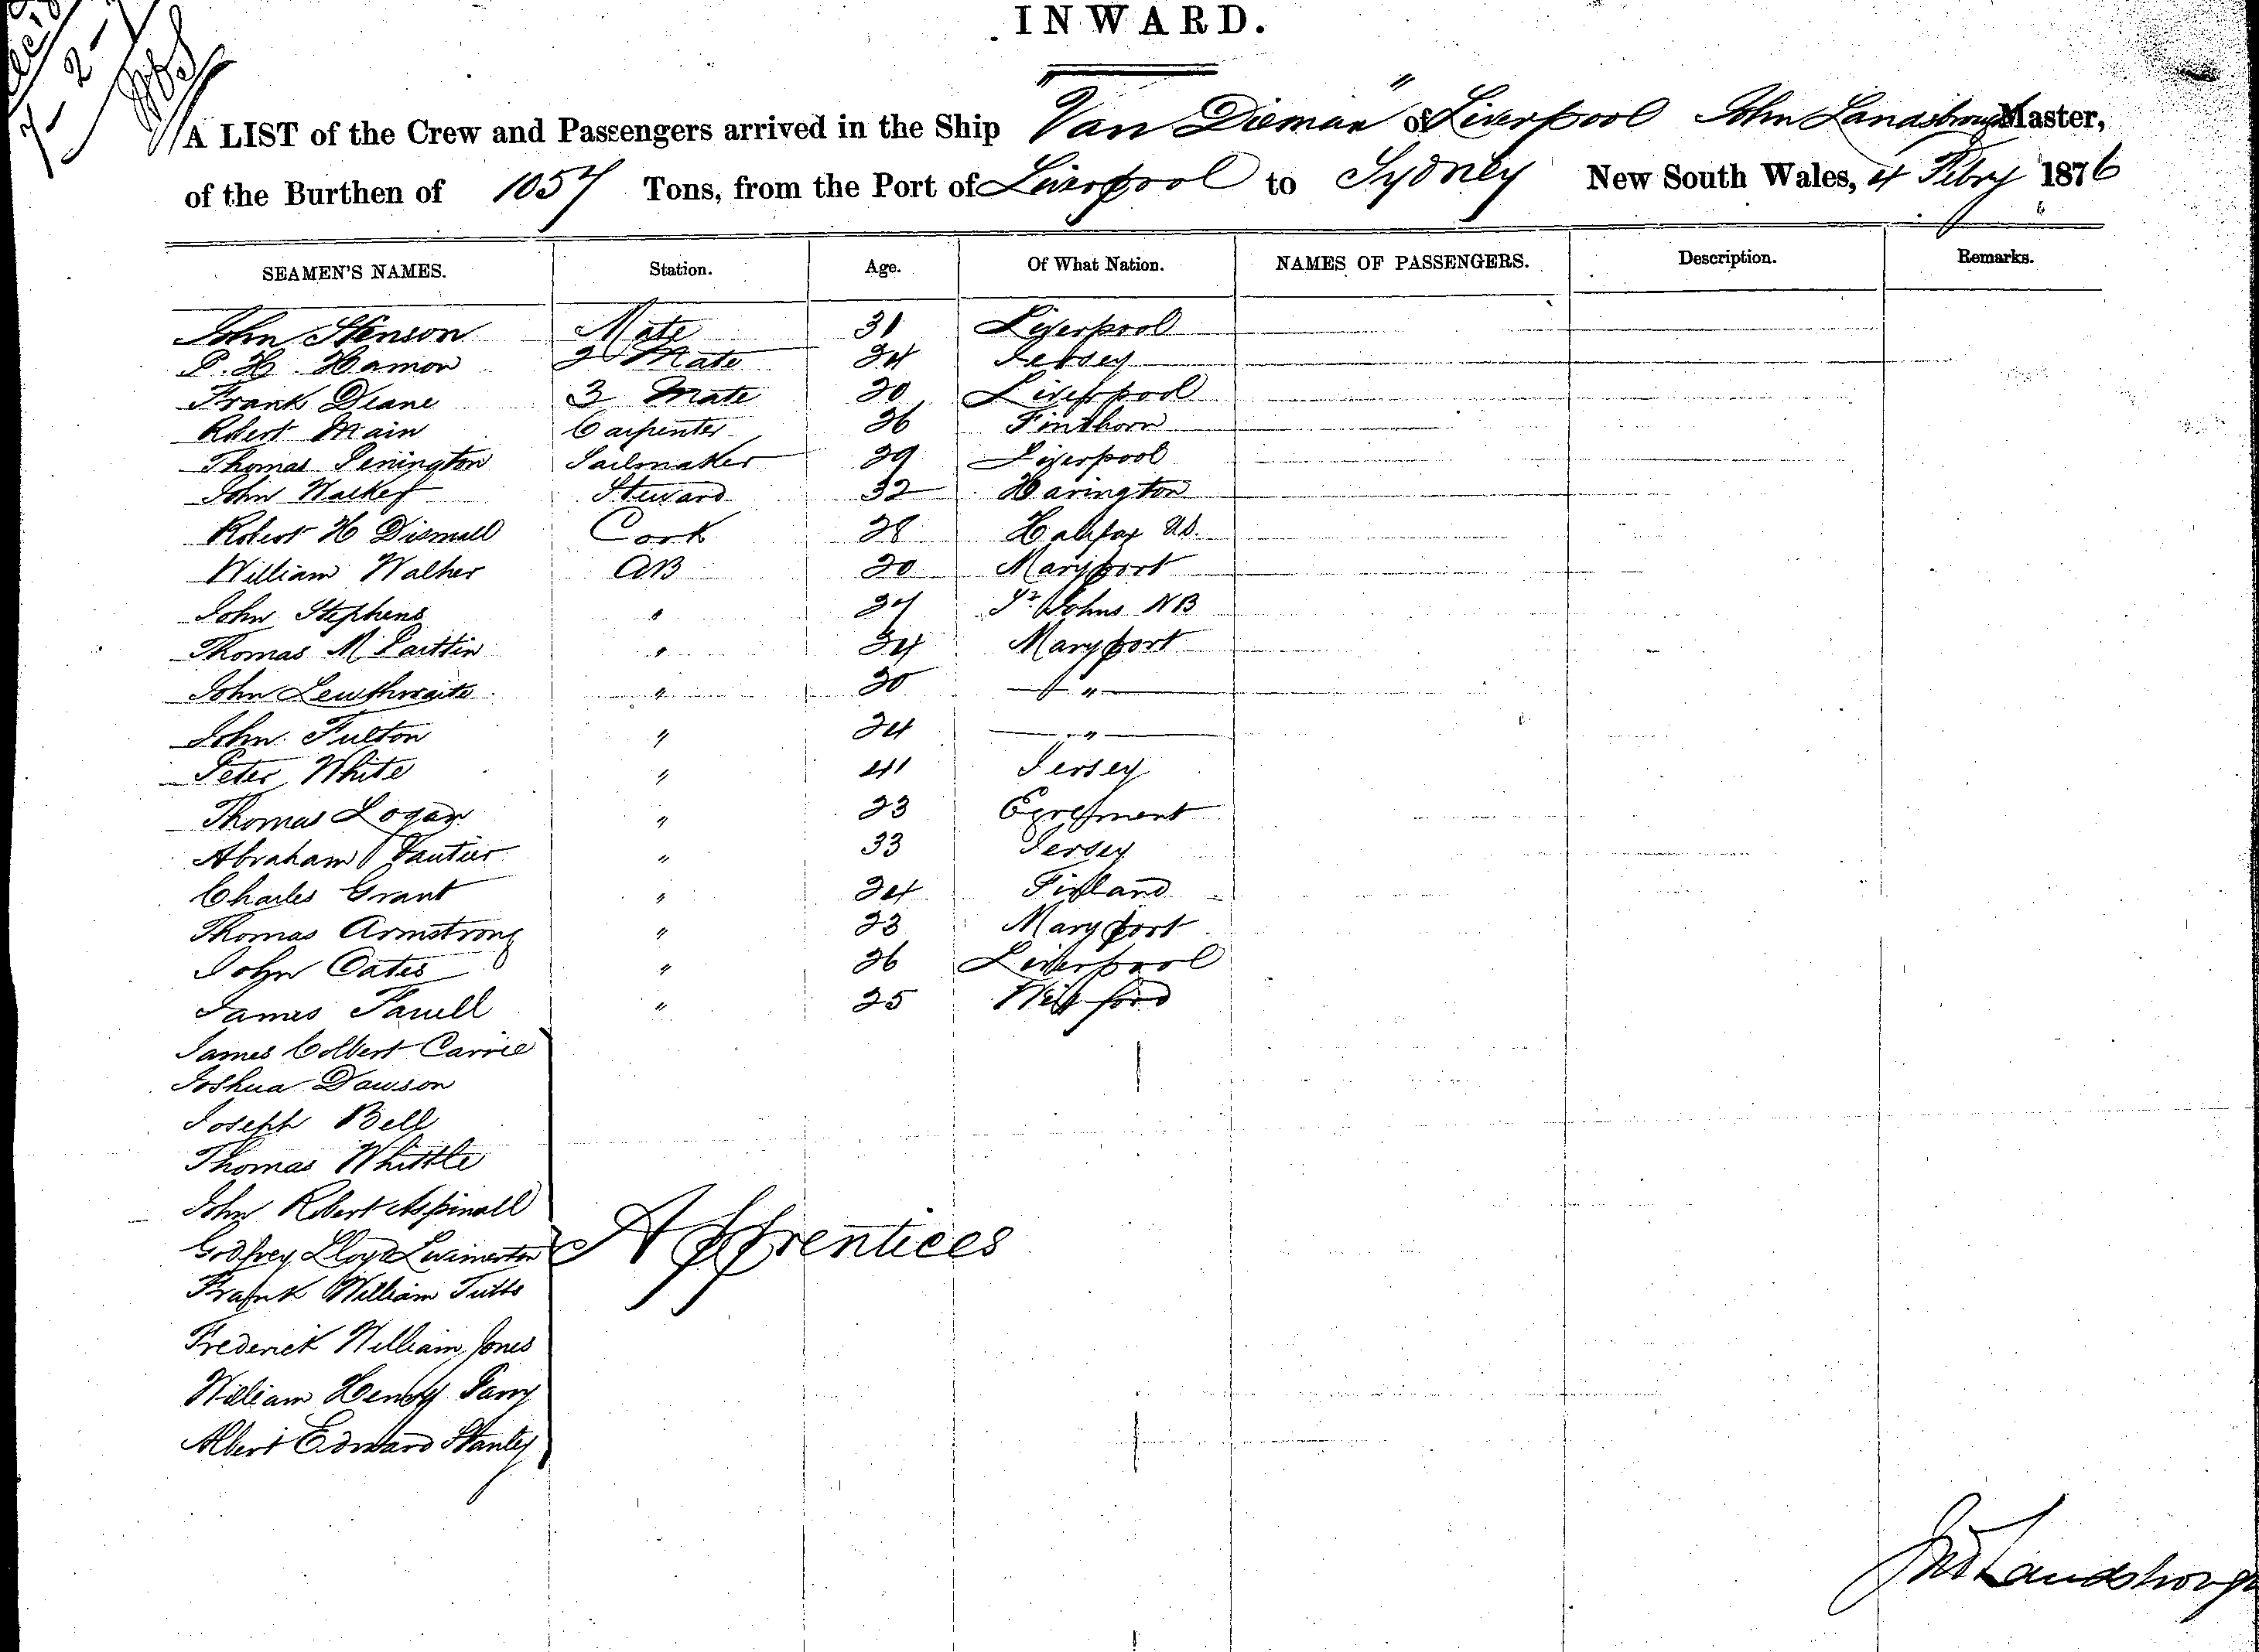 INWARD.
A LIST of the Crew and Passengers arrived in the Ship "Van Dieman" of Liverpool John Landsborough Master,
of the Burthen of 1057 Tons, from the Port of Liverpool to Sydney New South Wales, 4 Febry 1876
SEAMEN'S NAMES. Station. Age. Of What Nation. NAMES OF PASSENGERS. Description. Remarks.
John Stenson Mate 31 Liverpool
P. H. Hamon 2 Mate 24 Jersey
Frank Deane 3 Mate 20 Liverpool
Robert Main Carpenter 26 Finthorn
Thomas Penington Sailmaker 29 Liverpool
John Walker Steward 32 Harington
Robert H Dismall Cook 28 Halifax
William Walker AB 20 Maryport
John Stephens " 27 St Johns NB
Thomas " 24 Maryport
John Lewthwaite " 20 "
John Fulton " 24 "
Peter White " 41 Jersey
Thomas Logan " 23 Egremont
Abraham Vautier " 33 Jersey
Charles Grant " 24 Finland
Thomas Armstrong " 23 Maryport
John Oates " 26 Liverpool
James Farrell " 25 Wexford
James Colbert Carrie
Joshua Dawson
Joseph Bell
Thomas Whittle
John Robert Aspinall
Godfrey Lloyd
Apprentices
Frank William Tubbs
Frederick William Jones
William Henry Parry
Albert Edward Stanley
Jno Landsborough